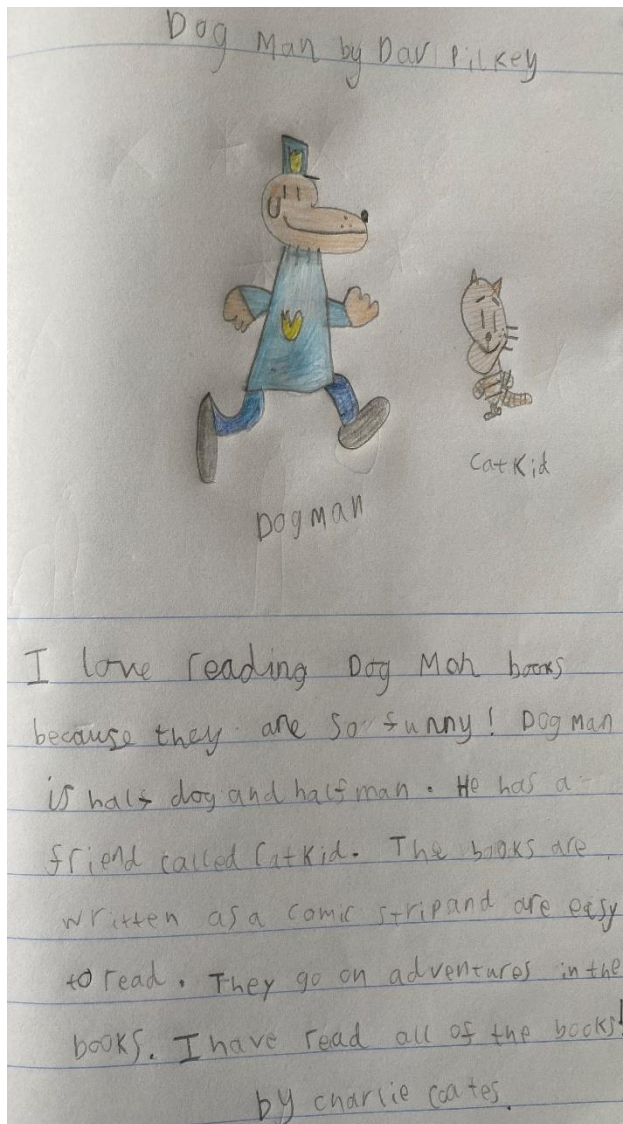 Dog Man by Dav Pilkey
Cat Kid
Dog man
I love reading Dog Man books
because they are so funny! Dog man
is half dog and half man. He has a
friend called Cat Kid. The books are
written as a comic strip and are easy
to read. They go on adventures in the
books. I have read all of the books!
by charlie coates.